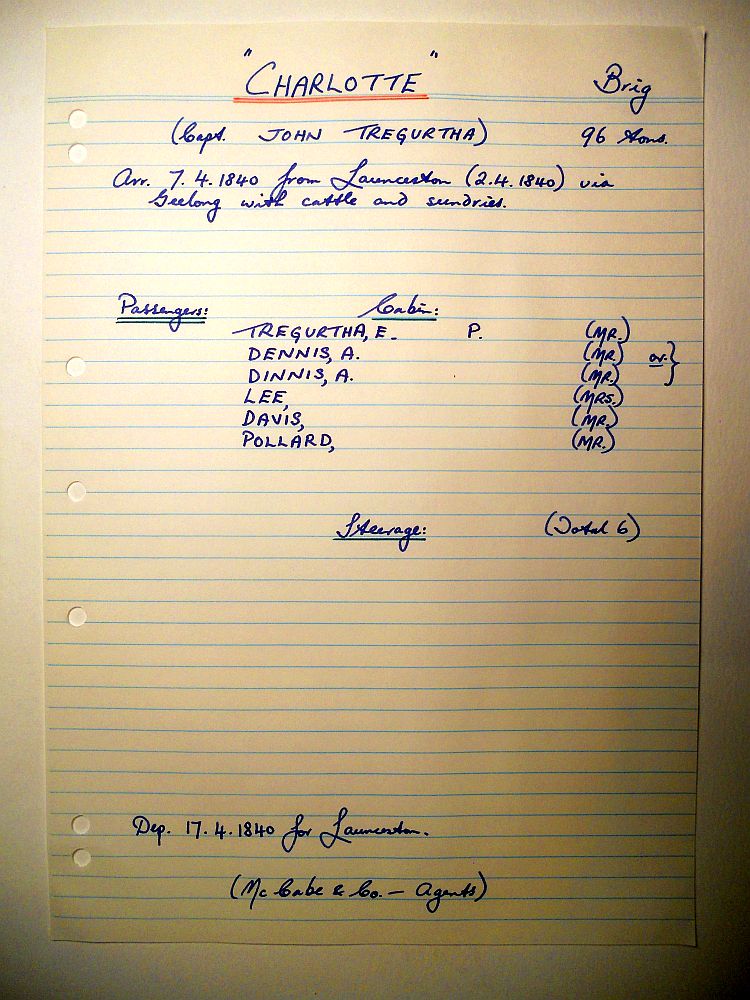 "CHARLOTTE" Brig
(Capt. JOHN TREGURTHA) 96 tons.
Arr. 7.4.1840 from Launceston (2.4.1840) via
Geelong with cattle and sundries.
Passengers: Cabin:
TREGURTHA, E. P. (MR.)
DENNIS, A. (MR.) or }
DINNIS, A. (MR.)
LEE, (MRS.)
DAVIS, (MR.)
POLLARD, (MR.)
Steerage: (Total 6)
Dep. 17.4.1840 for Launceston.
(McCabe & Co. - Agents)